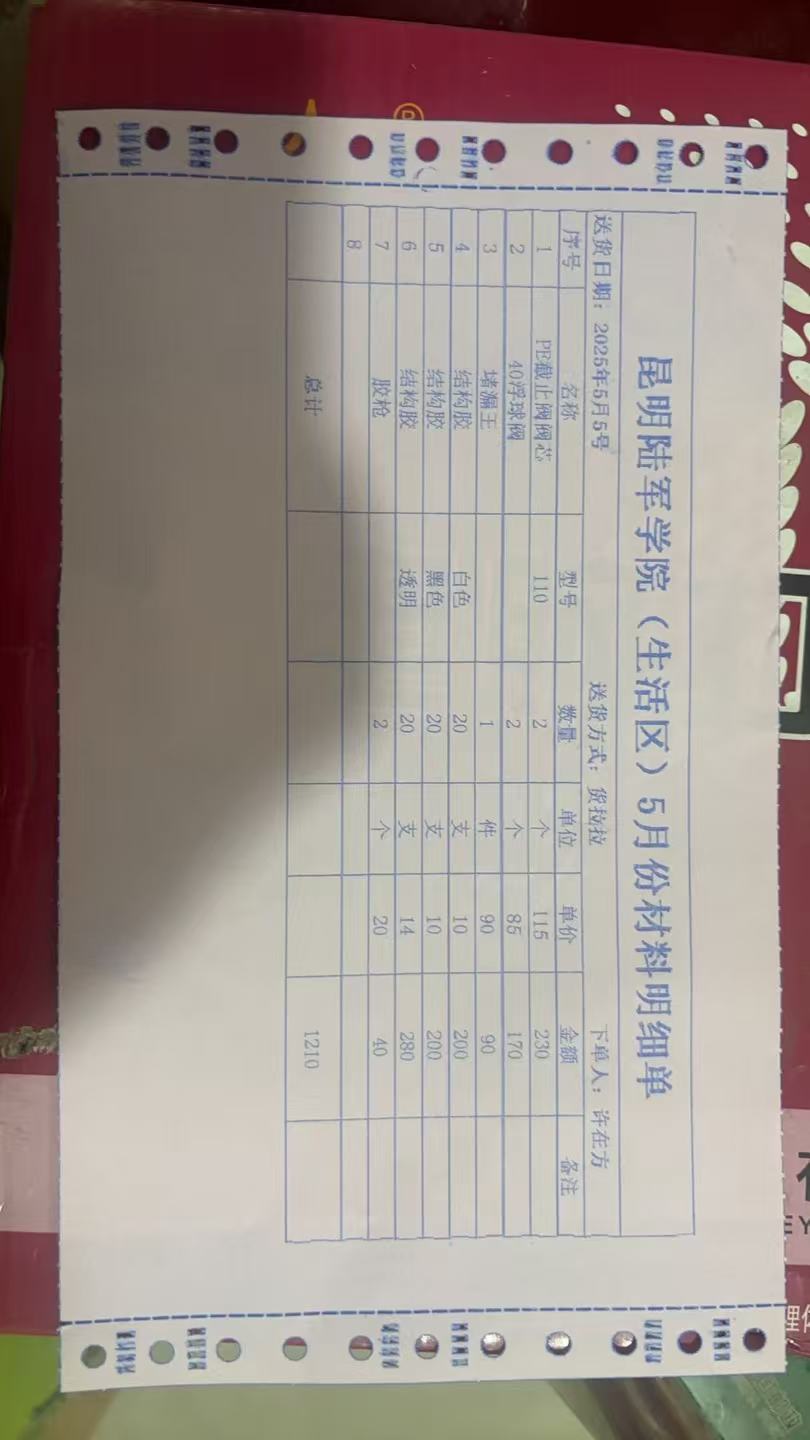 昆明陆军学院（生活区）5月份材料明细单
送货日期：2025年5月5号 送货方式：货拉拉 下单人：许在方
序号 名称 型号 数量 单位 单价 金额 备注
1 PE截止阀阀芯 110 2 个 115 230
2 40浮球阀 2 个 85 170
3 堵漏王 1 件 90 90
4 结构胶 白色 20 支 10 200
5 结构胶 黑色 20 支 10 200
6 结构胶 透明 20 支 14 280
7 胶枪 2 个 20 40
8
总计 1210